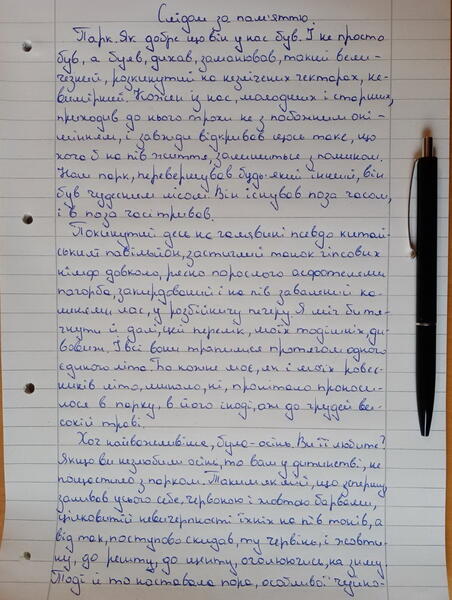 Слідом за пам'яттю.
Парк. Як добре що він у нас був. І не просто
був, а буяв, дихав, заманював, такий вели-
чезний, розкинутий на незлічених гектарах, не-
вимірний. Кожен із нас, молодших і старших,
приходив до нього трохи не з побожним оні-
мінням, і завжди відкривав щось таке, що
хоча б на пів життя, залишиться з помином.
Наш парк, перевершував будь-який инший, він
був чудесним лісом. Він існував поза часом,
і в поза часі тривав.
Покинутий десь на галявині псевдо китай-
ський павільйон, застиглий танок гіпсових
німф довколо, рясно порослого асфоделями
пагорба, занедбаний і на пів завалений ка-
мінням лас, у розбійничу печеру. Я міг би тя-
гнути й далі, цей перелік, моїх тодішніх, ди-
вовиж. І всі вони трапилися протягом одного
єдиного літа. Бо кожне моє, як і моїх ровес-
ників літо, минало, ні, пролітало проноси-
лося в парку, в його іноді, аж до грудей ви-
сокій траві.
Хоч найважливіше, було-осінь. Ви її любите?
Якщо ви незлюбили осінь, то вам у дитинстві, не
пощастило з парком. Таким як мій, що спершу,
заливав усього себе, червоною і жовтою барвами,
цілковитій невичерпності їхніх на пів тонів, а
від так, поступово скидав, ту червінь, і жовти-
ну, до решти, до щенту, оголюючись, на зиму.
Тоді й то наставала пора, особливої чуйно-